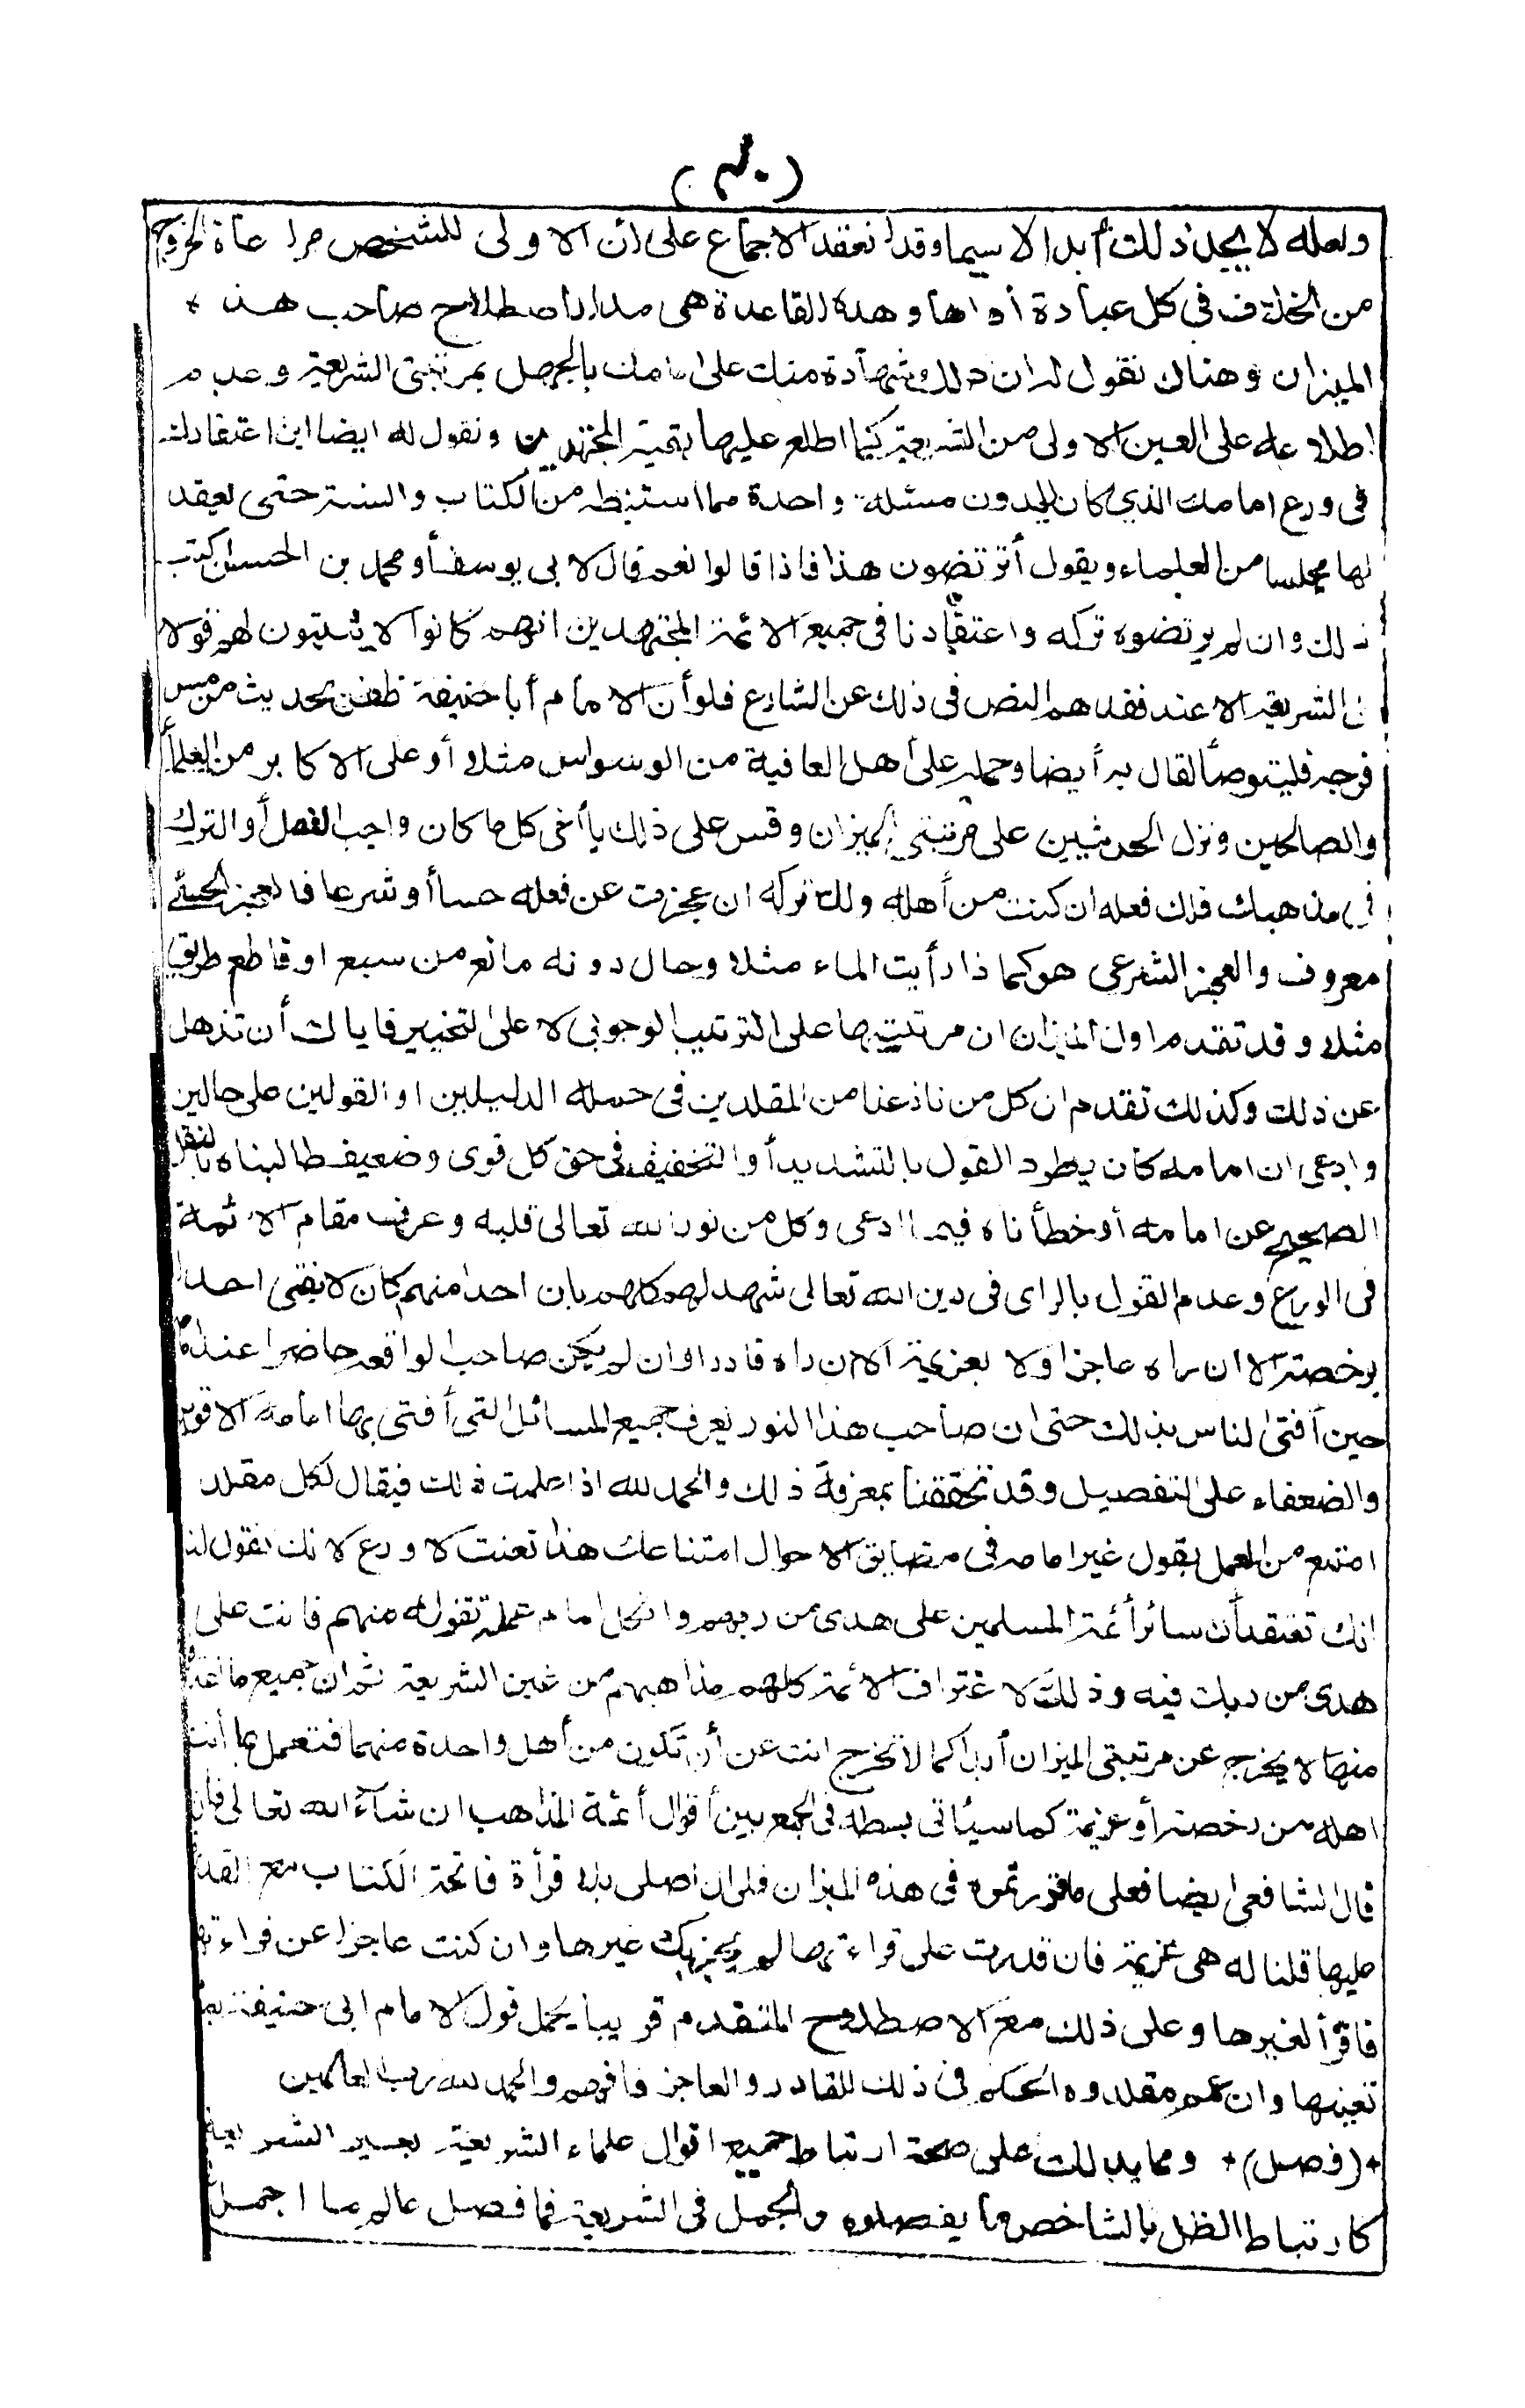 (٤٠)
ولعله لا يجد ذلك أبدا لا سيما وقد انعقد الاجماع على أن الاولى للشخص مراعاة الخروج
من الخلاف فى كل عبادة أداها وهذه القاعدة هى مدار اصطلاح صاحب هذه
الميزان وهناك نقول له ان ذلك شهادة منك على امامك بالجهل بمرتبتى الشريعة وعدم
اطلاعه على العين الاولى من الشريعة كما اطلع عليها بقية المجتهدين ونقول له ايضا اين اعتقادك
فى ورع امامك الذي كان لا يدون مسئلة واحدة مما استنبطه من الكتاب والسنة حتى يعقد
لها مجلسا من العلماء ويقول أترتضون هذا فاذا قالوا نعم قال لابى يوسف أو محمد بن الحسن اكتب
ذلك وان لم يرتضوه تركه واعتقادنا فى جميع الائمة المجتهدين انهم كانوا لا يثبتون لهم قولا
فى الشريعة الا عند فقدهم النص فى ذلك عن الشارع فلو أن الامام أبا حنيفة ظفر بحديث من مس
فرجه فليتوضأ لقال به أيضا وحمله على أهل العافية من الوسواس مثلا أو على الاكابر من العلماء
والصالحين ونزل الحديثين على مرتبتى الميزان وقس على ذلك يا أخى كل ما كان واجب الفعل أو الترك
فى مذهبك فلك فعله ان كنت من أهله ولك تركه ان عجزت عن فعله حسا أو شرعا فالعجز الحسى
معروف والعجز الشرعى هو كما اذا رأيت الماء مثلا وحال دونه مانع من سبع او قاطع طريق
مثلا وقد تقدم اول الميزان ان مرتبتيها على الترتيب الوجوبى لا على التخيير فاياك أن تذهل
عن ذلك وكذلك تقدم ان كل من نازعنا من المقلدين فى حمله الدليلين او القولين على حالين
وادعى ان امامه كان يطرد القول بالتشديد أو التخفيف فى حق كل قوى وضعيف طالبناه بالنقل
الصحيح عن امامه أو خطأناه فيما ادعى وكل من نور الله تعالى قلبه وعرف مقام الائمة
فى الورع وعدم القول بالراى فى دين الله تعالى شهد لهم كلهم بان احدا منهم كان لا يفتى احدا
برخصة الا ان راه عاجزا ولا بعزيمة الا ان راه قادرا وان لم يكن صاحب الواقعة حاضرا عنده
حين أفتى الناس بذلك حتى ان صاحب هذا النور يعرف جميع المسائل التى أفتى بها امامه الاقوياء
والضعفاء على التفصيل وقد تحققنا بمعرفة ذلك والحمد لله اذا علمت ذلك فيقال لكل مقلد
امتنع من العمل بقول غير امامه فى مضايق الاحوال امتناعك هذا تعنت لا ورع لانك تقول لنا
انك تعتقد أن سائر أئمة المسلمين على هدى من ربهم وان كل امام عملت بقوله منهم فانت على
هدى من ربك فيه وذلك لاغتراف الائمة كلهم مذاهبهم من عين الشريعة ثم ان جميع ما
منها لا يخرج عن مرتبتى الميزان أبدا كما لا تخرج انت عن أن تكون من أهل واحدة منهما فتعمل بما أنت
اهله من رخصة أو عزيمة كما سيأتى بسطه فى الجمع بين أقوال أئمة المذاهب ان شاء الله تعالى فان
قال الشافعى ايضا فعلى ما قررتموه فى هذه الميزان فلى ان اصلى بلا قرأة فاتحة الكتاب مع القدرة
عليها قلنا له هى عزيمة فان قدرت على قراءتها لم يجزيك غيرها وان كنت عاجزا عن قراءتها
فاقرأ لغيرها وعلى ذلك مع الاصطلاح المتقدم قريبا يحمل قول الامام ابى حنيفة بعدم
تعينها وان عمم مقلدوه الحكم فى ذلك للقادر والعاجز فافهم والحمد لله رب العالمين
+ (فصل) + ومما يدلك على صحة ارتباط جميع اقوال علماء الشريعة بعين الشريعة
كارتباط الظل بالشاخص ما يفصلوه والجمل فى الشريعة فما فصل عالم ما اجمل